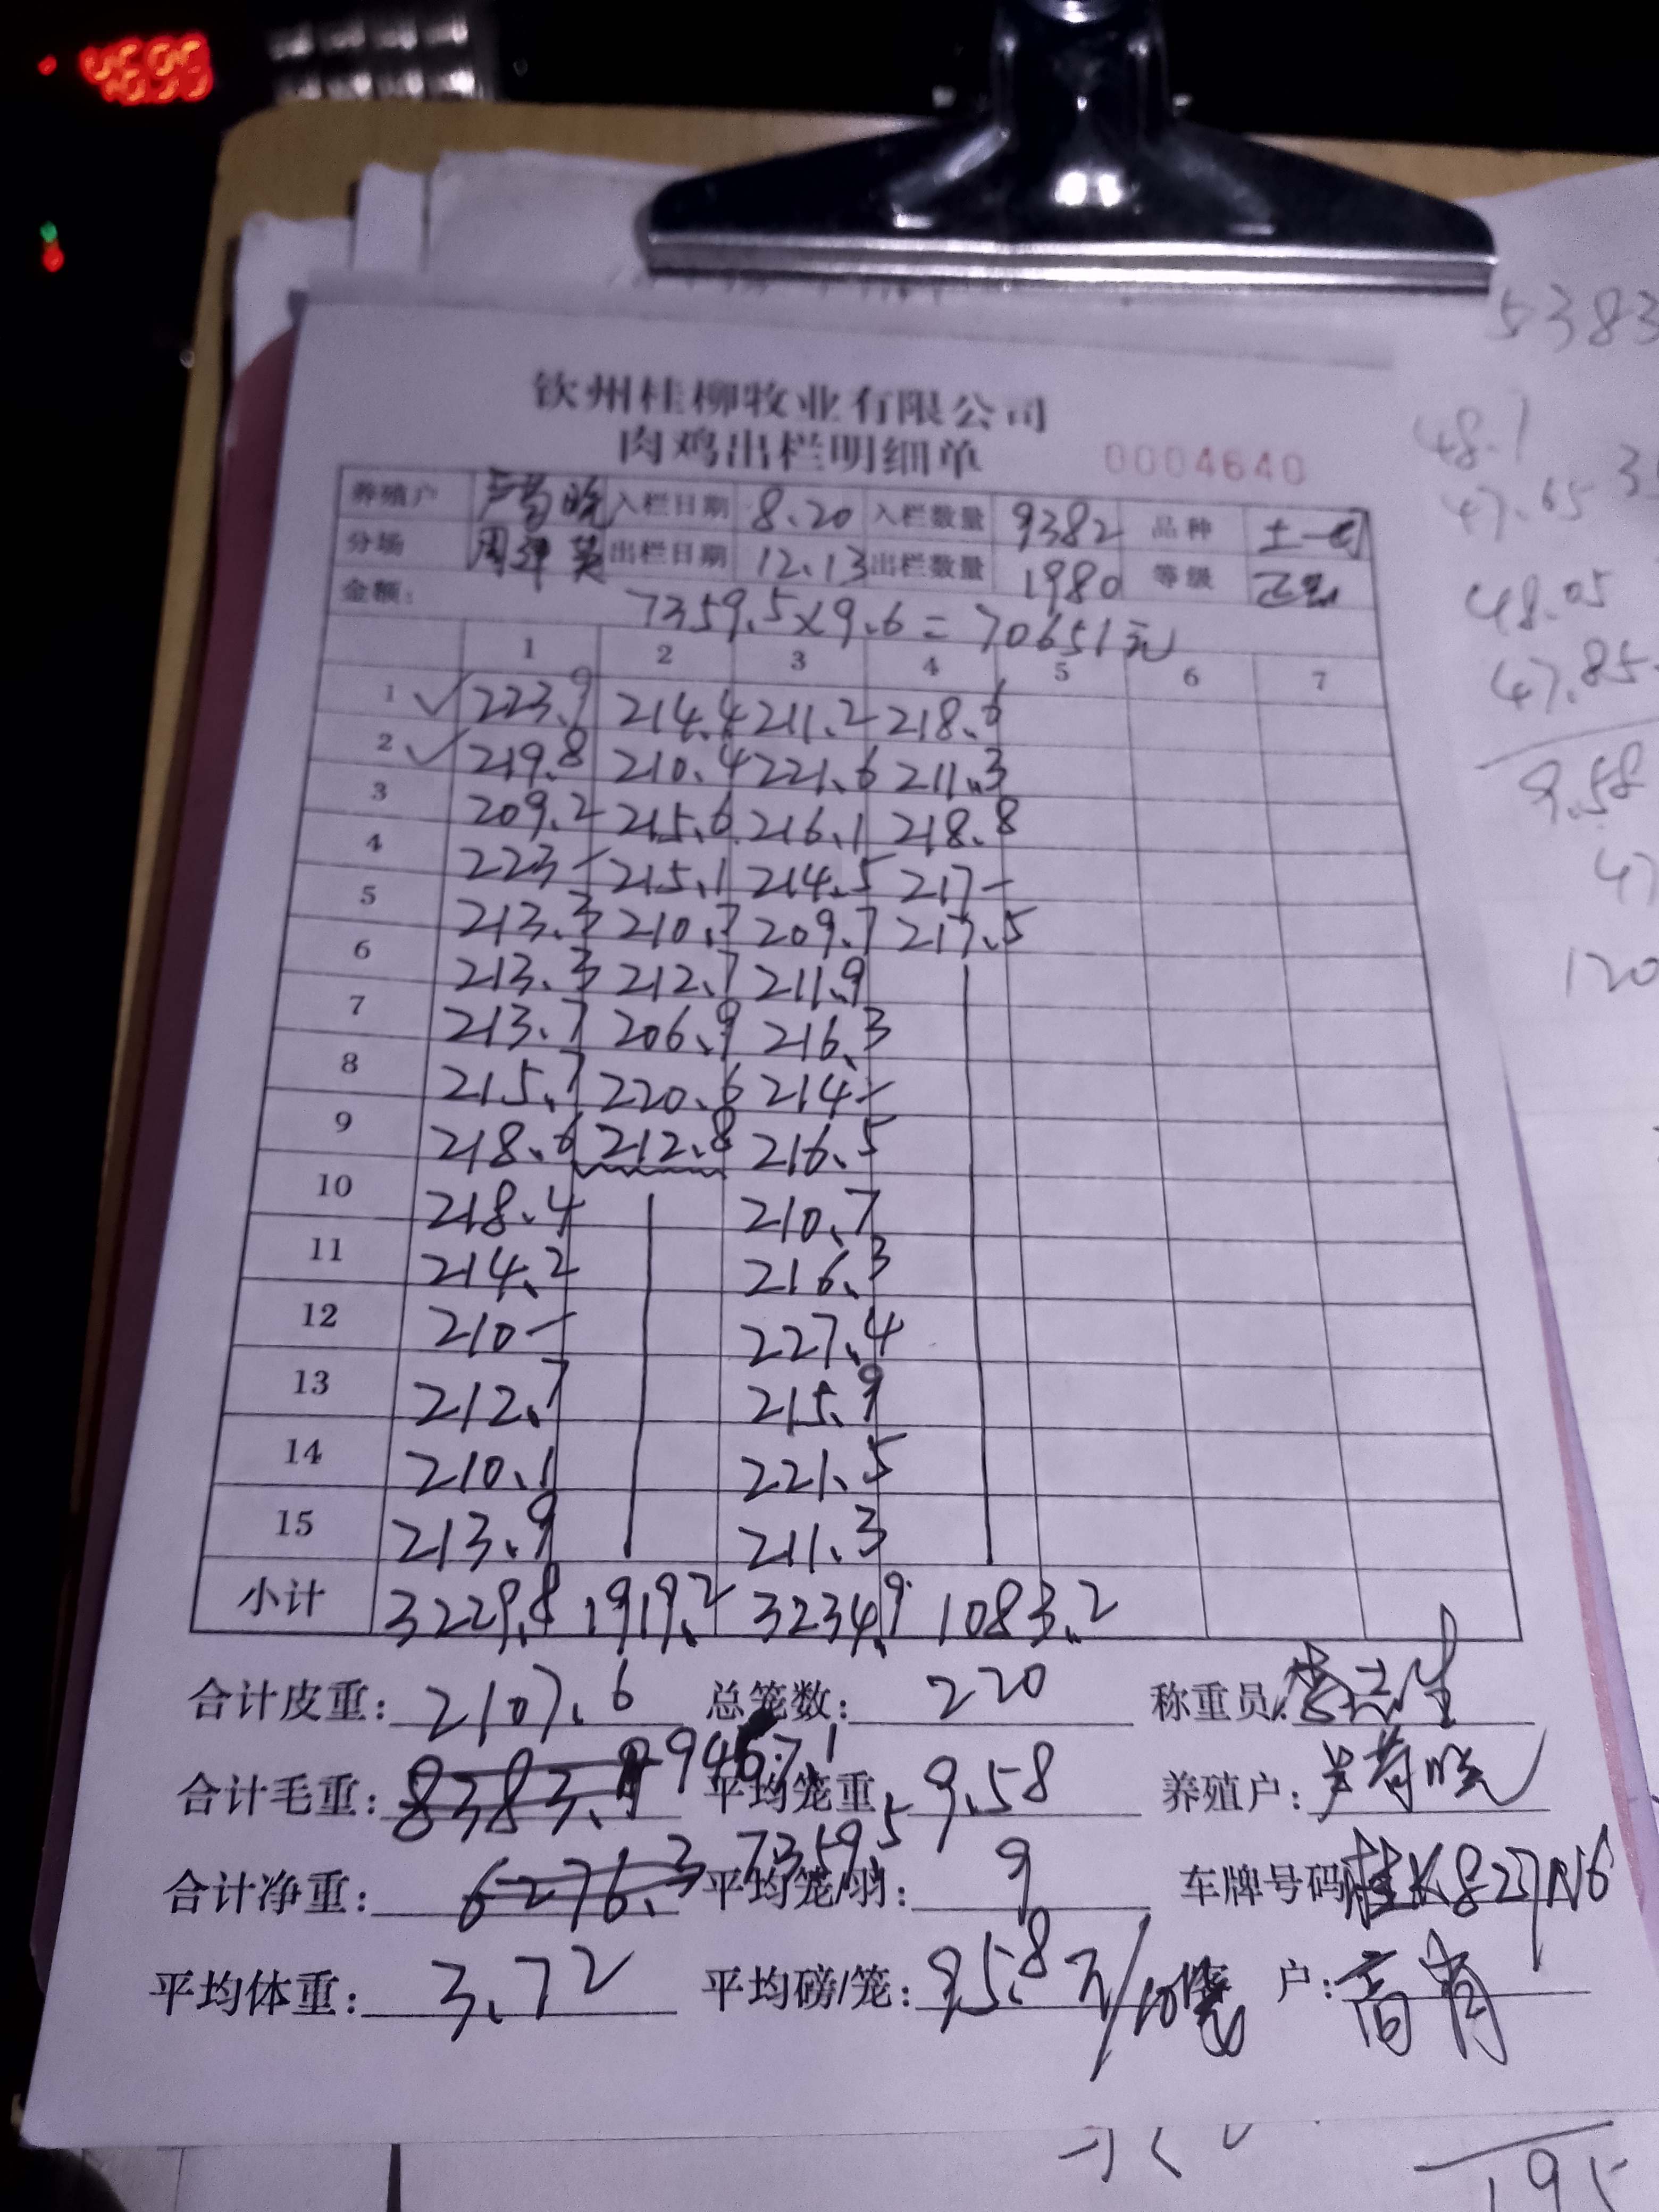 钦州桂柳牧业有限公司
肉鸡出栏明细单 0004640
养殖户 入栏日期 8.20 入栏数量 9382 品种 土一
分场 出栏日期 12.13 出栏数量 1980 等级
金额: 7359.5×9.6=70651元
1 2 3 4 5 6 7
1 ✓ 223.9 214.4 211.2 218.6
2 ✓ 219.8 210.4 221.6 211.3
3 209.2 215.6 216.1 218.8
4 223- 215.1 214.5 217-
5 213.3 210.7 209.7 217.5
6 213.3 212.7 211.9
7 213.7 206.9 216.3
8 215.7 220.6 214-
9 218.6 212.8 216.5
10 218.4 210.7
11 214.2 216.3
12 210- 227.4
13 212.7 215.9
14 210.1 221.5
15 213.9 211.3
小计 3229.8 1919.2 3234.9 1083.2
合计皮重: 2107.6 总笼数: 220 称重员:
合计毛重: 8383.9 9467.1 平均笼重 9.58 养殖户:
合计净重: 6276.3 7359.5 平均笼/羽: 9 车牌号码 桂K827N6
平均体重: 3.72 平均磅/笼: 95.8 户:
5383
48.1
47.65
48.05
47.85
9.58
47
120